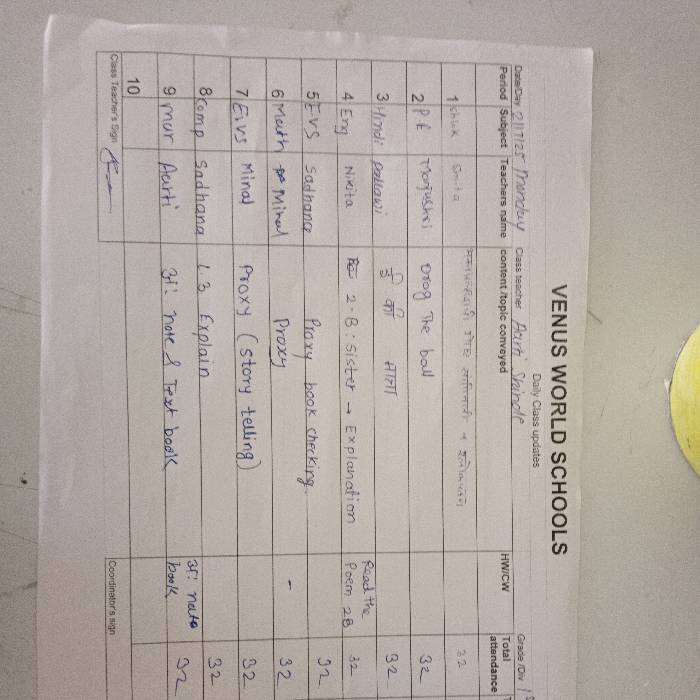 VENUS WORLD SCHOOLS
Daily Class updates
Date/Day 21/7/25 Monday Class teacher Aarti Shinde Grade /Div
Period Subject Teachers name content /topic conveyed HW/CW Total attendance
1 Smita 32
2 P.E Manjushri Drag The ball 32
3 Hindi Pallawi की माला 32
4 Eng Nikita 2-B: Sister → Explanation Read the Poem 2B 32
5 EVS Sadhana Proxy book checking. 32
6 Math Minal Proxy - 32
7 EVS Minal Proxy (story telling) 32
8 Comp Sadhana L 3 Explain 32
9 Mar Aarti अः note & Text book अः note book 32
10
Class Teacher's Sign Coordinator's sign